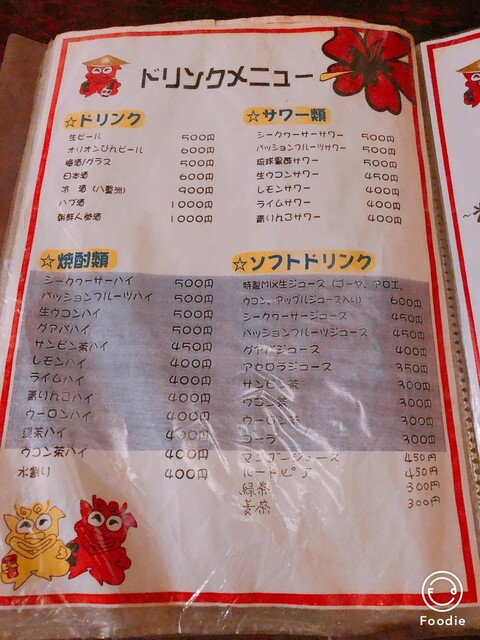 ドリンクメニュー
☆ドリンク
生ビール 500円
オリオンびんビール 600円
梅酒/グラス 500円
日本酒 600円
冷酒(八重洲) 900円
ハブ酒 1000円
朝鮮人参酒 1000円
☆サワー類
シークワーサーサワー 500円
パッションフルーツサワー 500円
琉球黒酢サワー 500円
生ウコンサワー 450円
レモンサワー 400円
ライムサワー 400円
青りんごサワー 400円
☆焼酎類
シークワーサーハイ 500円
パッションフルーツハイ 500円
生ウコンハイ 500円
グアバハイ 500円
サンピン茶ハイ 400円
レモンハイ 400円
ライムハイ 400円
青りんごハイ 400円
ウーロンハイ 400円
緑茶ハイ 400円
ウコン茶ハイ 400円
水割り 400円
☆ソフトドリンク
特製MIX生ジュース(ゴーヤ、アロエ、
ウコン、アップルジュース入り) 600円
シークワーサージュース 450円
パッションフルーツジュース 450円
グアバジュース 400円
アセロラジュース 350円
サンピン茶 300円
ウコン茶 300円
ウーロン茶 300円
コーラ 300円
マンゴージュース 450円
ルートビア 450円
緑茶 300円
麦茶 300円
Foodie